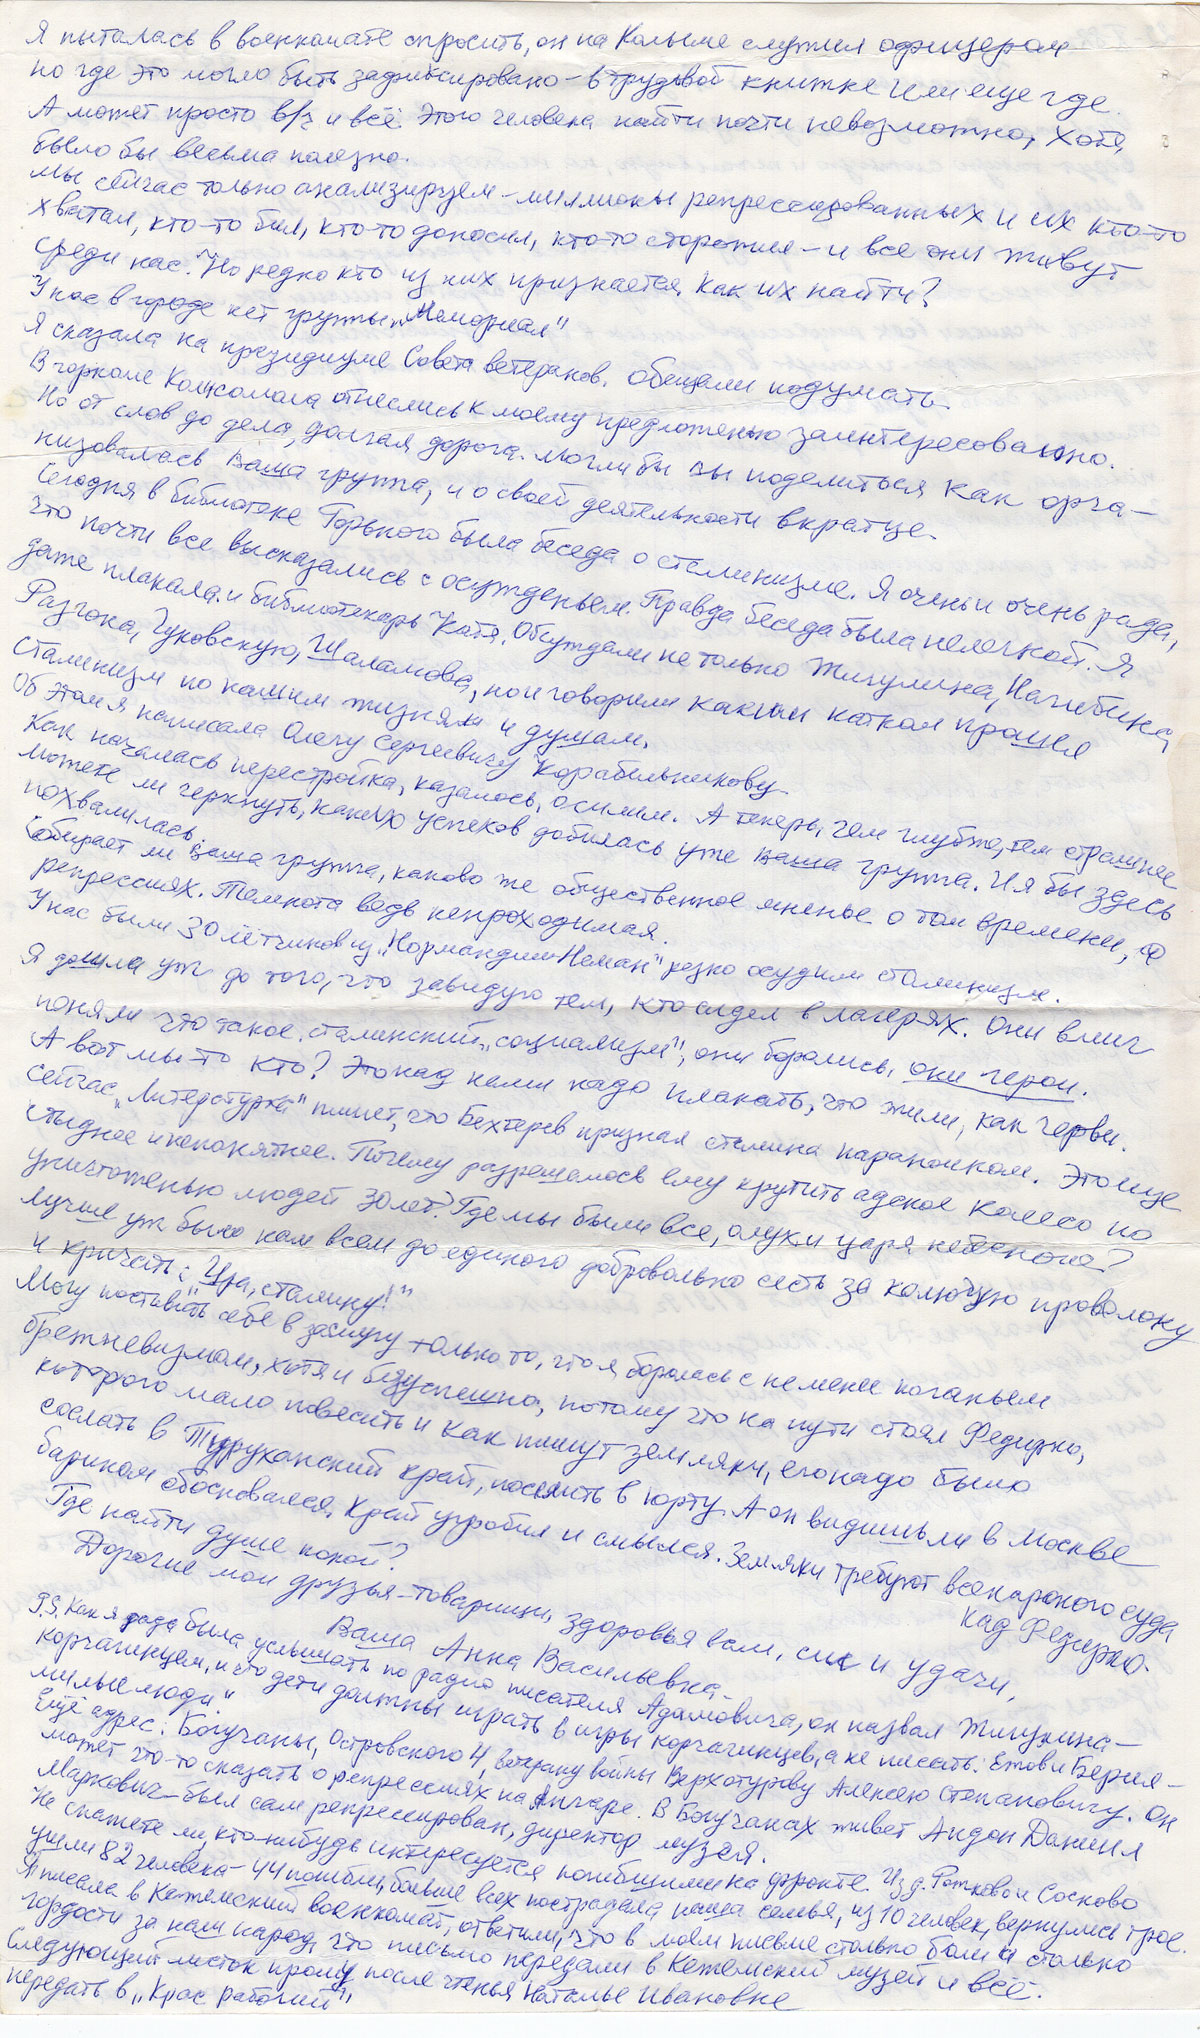 Я пыталась в военкомате спросить, он на Колыме служил офицером
но где это могло быть зафиксировано – в трудовой книжке или еще где.
А может просто в/з и всё. Этого человека найти почти невозможно, хотя,
было бы весьма полезно.
Мы сейчас только анализируем – миллионы репрессированных и их кто-то
хватал, кто-то бил, кто-то доносил, кто-то сторожил – и все они живут
среди нас. Но редко кто из них признается. Как их найти?
У нас в городе нет группы „Мемориал"
Я сказала на президиуме Совета ветеранов. Обещали подумать.
В горкоме Комсомола отнеслись к моему предложенью заинтересованно.
Но от слов до дела, долгая дорога. Могли бы вы поделиться как орга-
низовалась Ваша группа, и о своей деятельности вкратце.
Сегодня в библиотеке Горького была беседа о сталинизме. Я очень и очень рада,
что почти все высказались с осужденьем. Правда беседа была нелегкой. Я
даже плакала и библиотекарь Катя. Обсуждали не только Жигулина, Нагибина,
Разгона, Чуковскую, Шаламова, но и говорили каким катком прошел
Сталинизм по нашим жизням и душам.
Об этом я написала Олегу Сергеевичу Корабельникову.
Как началась перестройка, казалось, осилим. А теперь, чем глубже, тем страшнее
Можете ли черкнуть, каких успехов добилась уже Ваша группа. И я бы здесь
похвалилась.
Собирает ли Ваша группа, каково же общественное мненье о том времени, о
репрессиях. Темнота ведь непроходимая.
У нас были 30 лётчиков из „Нормандии-Неман" резко осудили сталинизм.
Я дошла уж до того, что завидую тем, кто сидел в лагерях. Они вмиг
поняли что такое сталинский „социализм", они боролись, они герои.
А вот мы-то кто? Это над нами надо плакать, что жили, как черви.
Сейчас „Литературка" пишет, что Бехтерев признал сталина параноиком. Это еще
стыднее и непонятнее. Почему разрешалось ему крутить адское колесо по
уничтоженью людей 30 лет? Где мы были все, олухи царя небесного?
Лучше уж было нам всем до единого добровольно сесть за колючую проволоку
и кричать: „Ура, сталину!"
Могу поставить себе в заслугу только то, что я боролась с не менее поганым
брежневизмом, хотя и безуспешно, потому что на пути стоял Федирко,
которого мало повесить и как пишут земляки, его надо было
сослать в Туруханский край, поселить в юрту. А он видишь ли в Москве
барином обосновался. Край угробил и смылся. Земляки требуют всенародного суда
над Федирко.
Где найти душе покой?
Дорогие мои друзья-товарищи, здоровья вам, сил и удачи,
Ваша Анна Васильевна.
P.S. Как я рада была услышать по радио писателя Адамовича, он назвал Жигулина –
корчагинцем, и что дети должны играть в игры корчагинцев, а не писать: Ежов и Берия –
милые люди."
Ещё адрес: Богучаны, Островского 4, ветерану войны Верхотурову Алексею Степановичу. Он
может что-то сказать о репрессиях на Ангаре. В Богучанах живет Андон Даниил
Маркович – был сам репрессирован, директор музея.
Не скажете ли, кто-нибудь интересуется погибшими на фронте. Из д. Рожково и Сосново
ушли 82 человека – 44 погибли, больше всех пострадала наша семья, из 10 человек, вернулись трое.
Я писала в Кежемский военкомат, ответили, что в моём письме столько боли и столько
гордости за наш народ, что письмо передали в Кежемский музей и всё.
Следующий листок прошу после чтенья Наталье Ивановне
передать в „Крас рабочий"